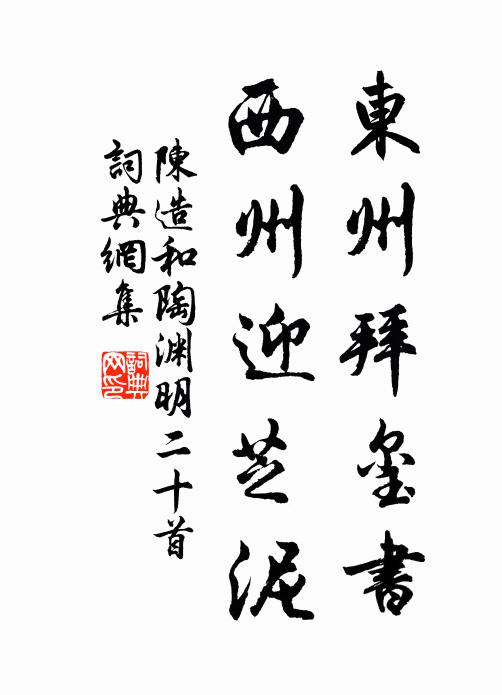 東州拜璽書
西州迎芝泥
陳造和陶淵明二十首
詞典網集
詞典網印